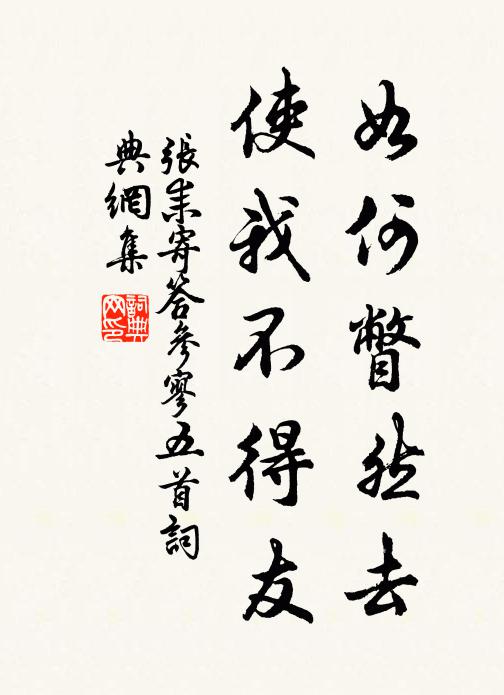 如何瞥然去
使我不得友
張耒寄答參寥五首詞
典網集
詞典網印